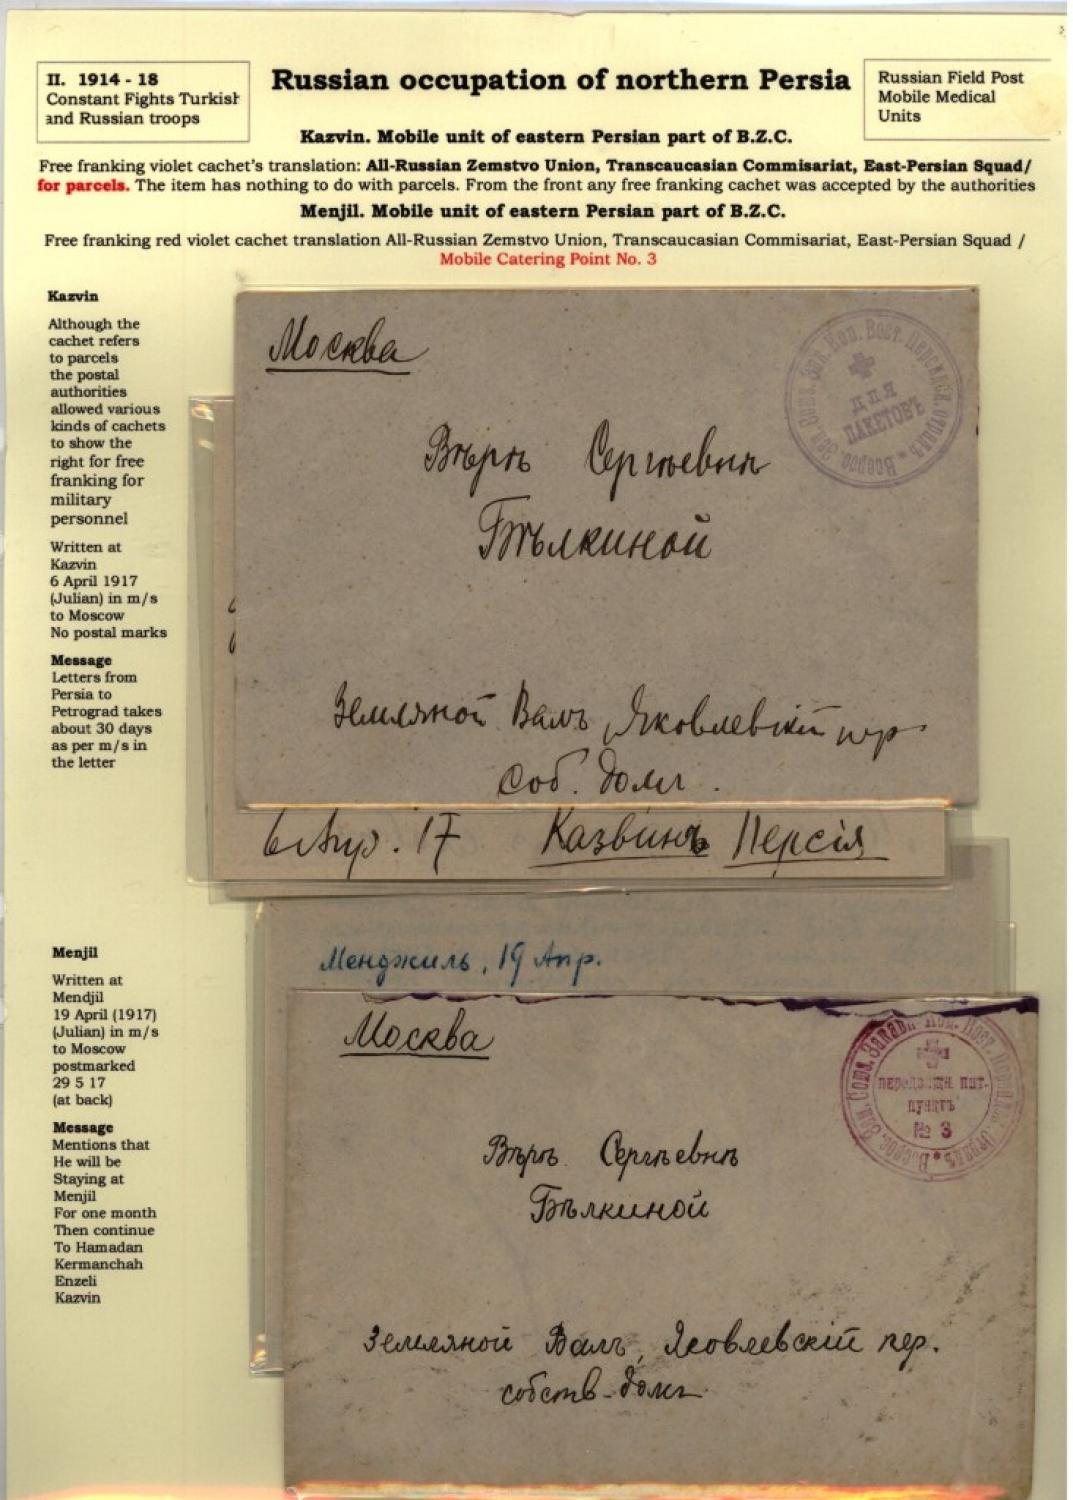 II. 1914 - 18
Constant Fights Turkish
and Russian troops
Russian occupation of northern Persia
Russian Field Post
Mobile Medical
Units
Kazvin. Mobile unit of eastern Persian part of B.Z.C.
Free franking violet cachet's translation: All-Russian Zemstvo Union, Transcaucasian Commisariat, East-Persian Squad/
for parcels. The item has nothing to do with parcels. From the front any free franking cachet was accepted by the authorities
Menjil. Mobile unit of eastern Persian part of B.Z.C.
Free franking red violet cachet translation All-Russian Zemstvo Union, Transcaucasian Commisariat, East-Persian Squad /
Mobile Catering Point No. 3
Kazvin
Although the
cachet refers
to parcels
the postal
authorities
allowed various
kinds of cachets
to show the
right for free
franking for
military
personnel
Written at
Kazvin
6 April 1917
(Julian) in m/s
to Moscow
No postal marks
Message
Letters from
Persia to
Petrograd takes
about 30 days
as per m/s in
the letter
Москва
Вѣрѣ Сергѣевнѣ
Бѣлкиной
Земляной Валъ, Яковлевскій пер
соб. домъ.
Всерос. Зем. Вост. Персидск. отрядъ
ДЛЯ
ПАКЕТОВЪ
6 Апр. 17 Казвинъ Персія
Menjil
Written at
Mendjil
19 April (1917)
(Julian) in m/s
to Moscow
postmarked
29 5 17
(at back)
Message
Mentions that
He will be
Staying at
Menjil
For one month
Then continue
To Hamadan
Kermanchah
Enzeli
Kazvin
Менджиль, 19 Апр.
Москва
Вѣрѣ Сергѣевнѣ
Бѣлкиной
Земляной Валъ, Яковлевскій пер.
собств. домъ
Всерос. Зем. Союз. Закавк. Ком. Вост. Персидск. Отрядъ
передвижн. пит.
пунктъ
№ 3